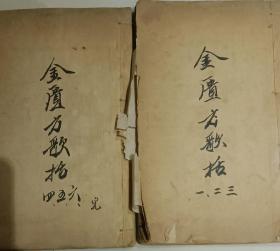 金匱方歌括
一、二、三
金匱方歌括
四、五、六、完